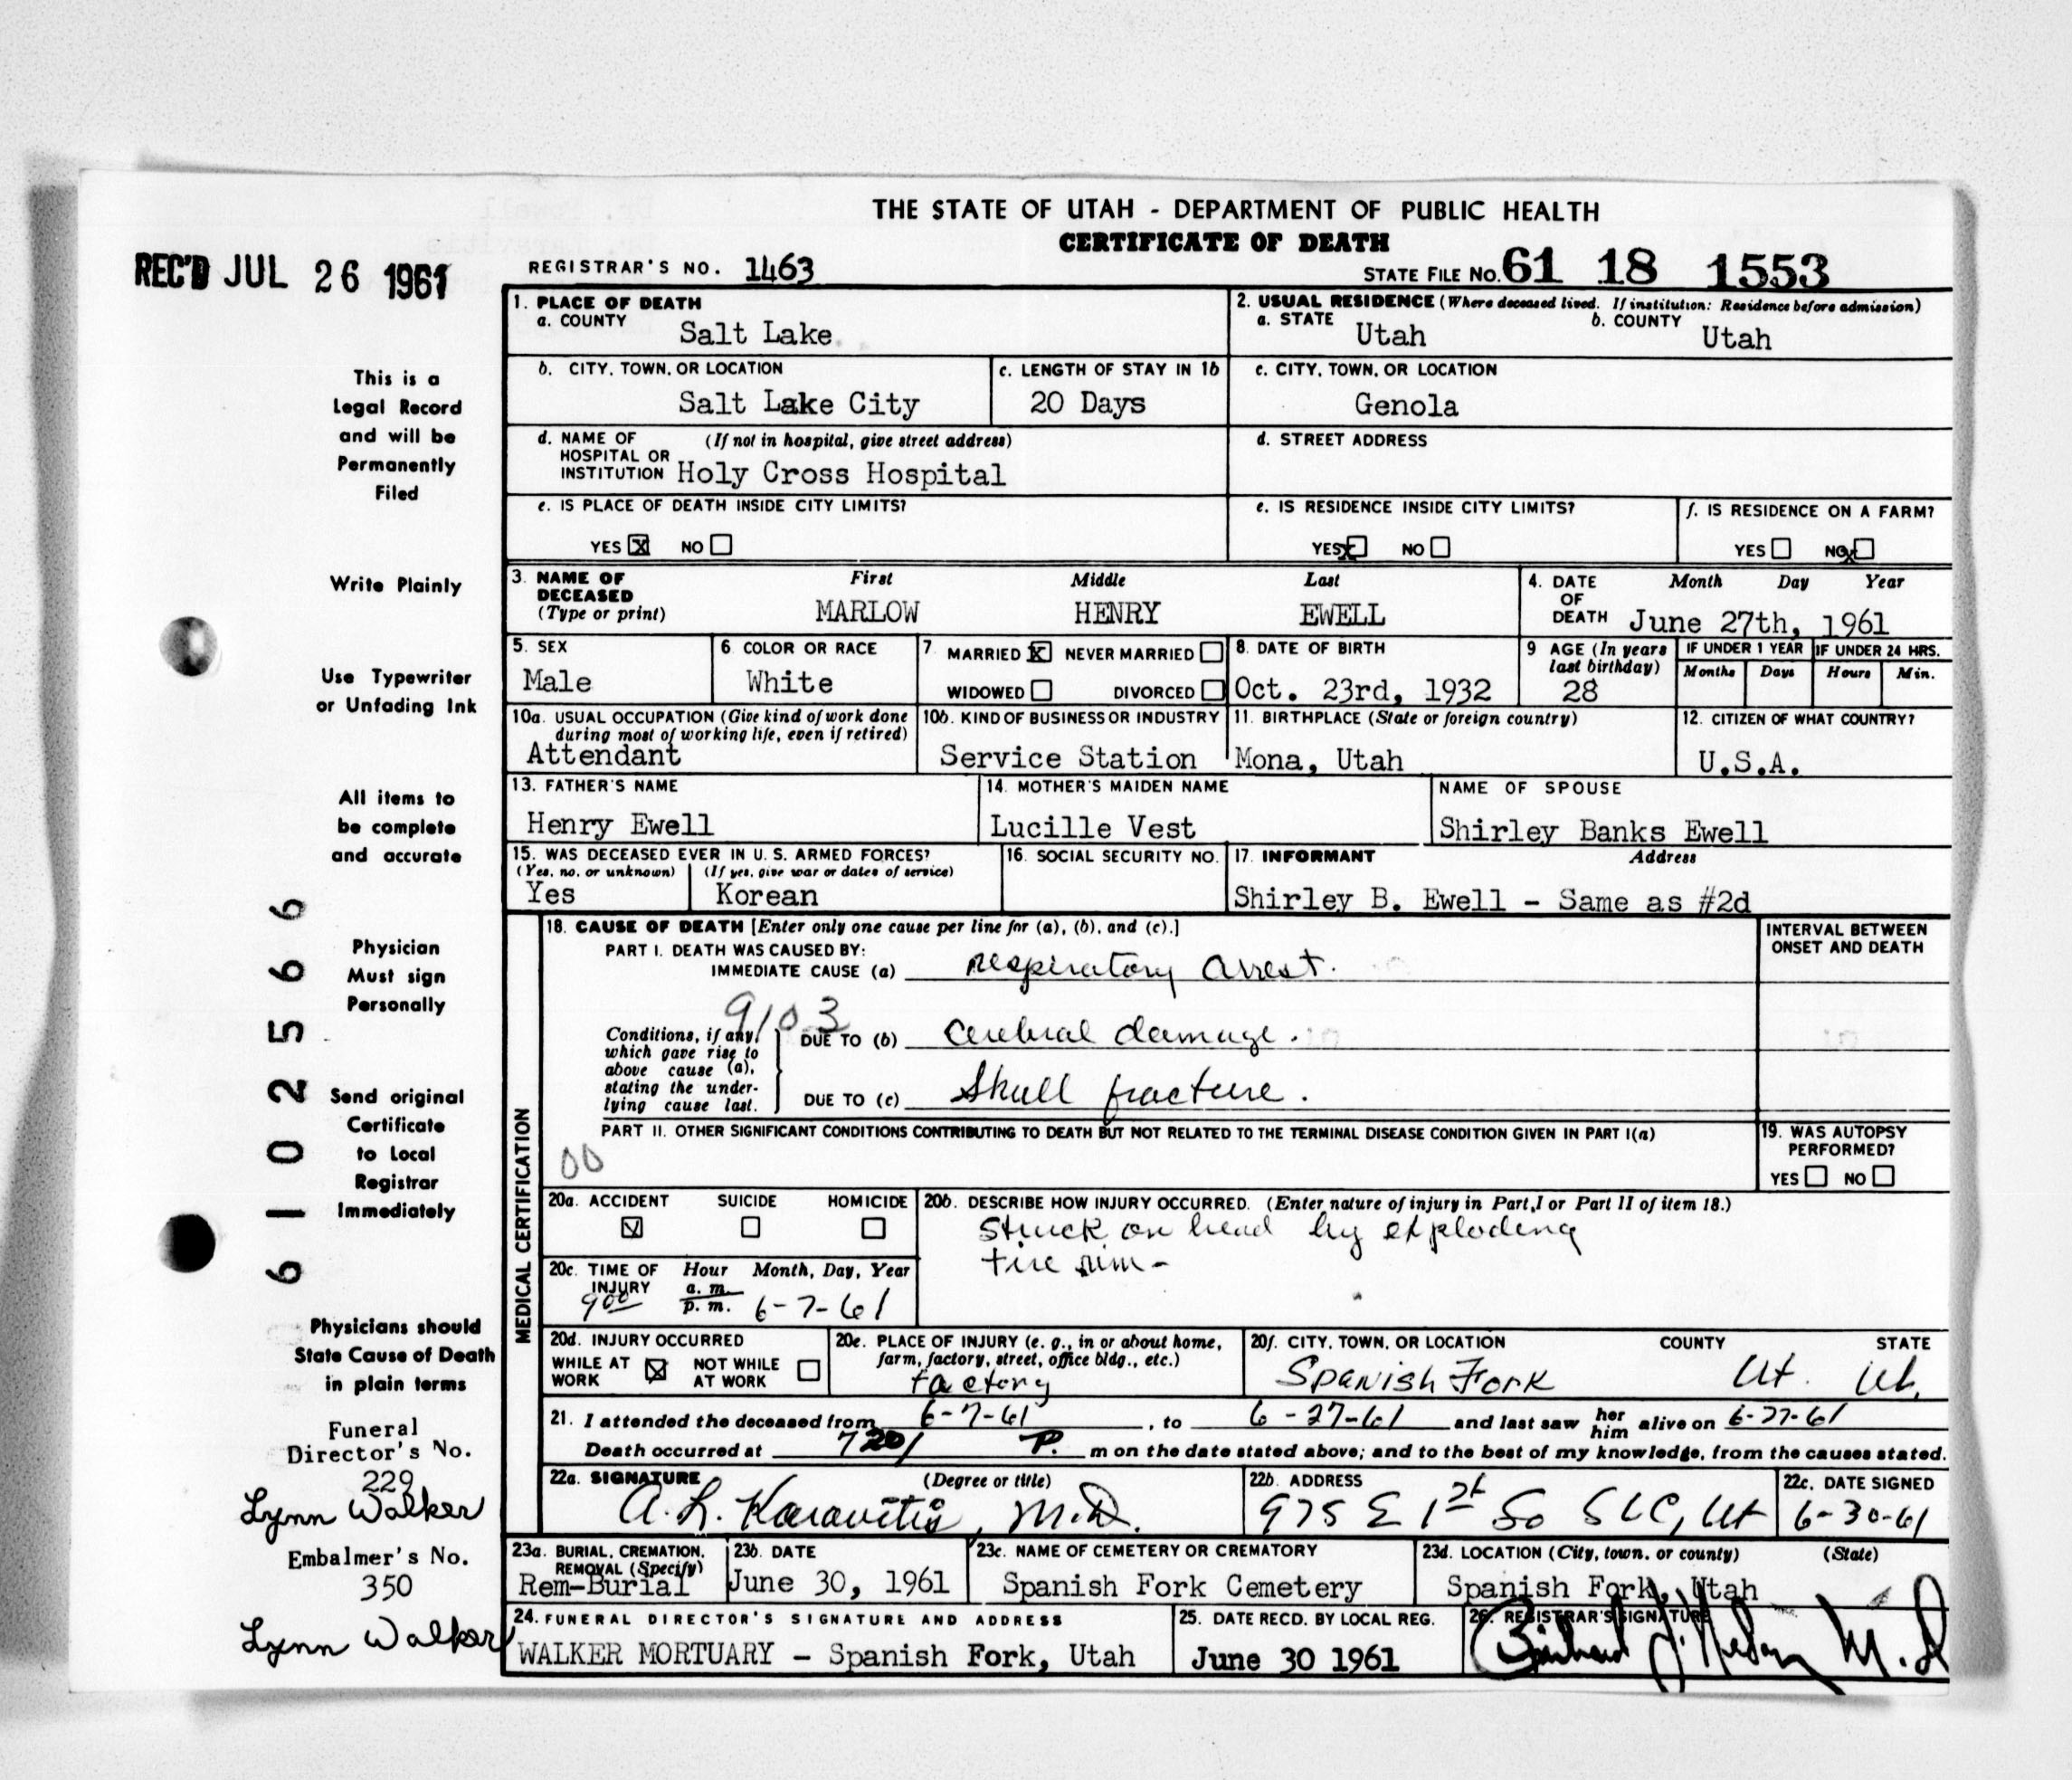 THE STATE OF UTAH - DEPARTMENT OF PUBLIC HEALTH
CERTIFICATE OF DEATH
REC'D JUL 26 1961
REGISTRAR'S NO. 1463
STATE FILE NO. 61 18 1553
1. PLACE OF DEATH
a. COUNTY Salt Lake
2. USUAL RESIDENCE (Where deceased lived. If institution: Residence before admission)
a. STATE Utah b. COUNTY Utah
b. CITY, TOWN, OR LOCATION
Salt Lake City
c. LENGTH OF STAY IN 1b
20 Days
c. CITY, TOWN, OR LOCATION
Genola
d. NAME OF HOSPITAL OR INSTITUTION (If not in hospital, give street address)
Holy Cross Hospital
d. STREET ADDRESS
e. IS PLACE OF DEATH INSIDE CITY LIMITS?
YES X NO
e. IS RESIDENCE INSIDE CITY LIMITS?
YES X NO
f. IS RESIDENCE ON A FARM?
YES NO X
3. NAME OF DECEASED (Type or print)
First Middle Last
MARLOW HENRY EWELL
4. DATE OF DEATH Month Day Year
June 27th, 1961
5. SEX
Male
6 COLOR OR RACE
White
7 MARRIED X NEVER MARRIED
WIDOWED DIVORCED
8. DATE OF BIRTH
Oct. 23rd, 1932
9 AGE (In years last birthday)
28
IF UNDER 1 YEAR IF UNDER 24 HRS.
Months Days Hours Min.
10a. USUAL OCCUPATION (Give kind of work done during most of working life, even if retired)
Attendant
10b. KIND OF BUSINESS OR INDUSTRY
Service Station
11. BIRTHPLACE (State or foreign country)
Mona, Utah
12. CITIZEN OF WHAT COUNTRY?
U.S.A.
13. FATHER'S NAME
Henry Ewell
14. MOTHER'S MAIDEN NAME
Lucille Vest
NAME OF SPOUSE
Shirley Banks Ewell
15. WAS DECEASED EVER IN U. S. ARMED FORCES?
(Yes, no, or unknown) (If yes, give war or dates of service)
Yes Korean
16. SOCIAL SECURITY NO.
17. INFORMANT Address
Shirley B. Ewell - Same as #2d
MEDICAL CERTIFICATION
18. CAUSE OF DEATH [Enter only one cause per line for (a), (b), and (c).]
INTERVAL BETWEEN ONSET AND DEATH
PART I. DEATH WAS CAUSED BY:
IMMEDIATE CAUSE (a) respiratory arrest.
9103
Conditions, if any, which gave rise to above cause (a), stating the underlying cause last.
DUE TO (b) cerebral damage.
DUE TO (c) Skull fracture.
PART II. OTHER SIGNIFICANT CONDITIONS CONTRIBUTING TO DEATH BUT NOT RELATED TO THE TERMINAL DISEASE CONDITION GIVEN IN PART I(a)
00
19. WAS AUTOPSY PERFORMED?
YES NO
20a. ACCIDENT SUICIDE HOMICIDE
20b. DESCRIBE HOW INJURY OCCURRED. (Enter nature of injury in Part I or Part II of item 18.)
Struck on head by exploding
tire rim -
20c. TIME OF INJURY Hour Month, Day, Year
900 a. m. p. m. 6-7-61
20d. INJURY OCCURRED
WHILE AT WORK X NOT WHILE AT WORK
20e. PLACE OF INJURY (e. g., in or about home, farm, factory, street, office bldg., etc.)
factory
20f. CITY, TOWN, OR LOCATION COUNTY STATE
Spanish Fork Ut. Ut.
21. I attended the deceased from 6-7-61, to 6-27-61 and last saw her him alive on 6-27-61
Death occurred at 720 P. m on the date stated above; and to the best of my knowledge, from the causes stated.
22a. SIGNATURE (Degree or title)
A. L. Karavitis, M.D.
22b. ADDRESS
975 E 1st So SLC, Ut
22c. DATE SIGNED
6-30-61
23a. BURIAL, CREMATION, REMOVAL (Specify)
Rem-Burial
23b. DATE
June 30, 1961
23c. NAME OF CEMETERY OR CREMATORY
Spanish Fork Cemetery
23d. LOCATION (City, town, or county) (State)
Spanish Fork, Utah
24. FUNERAL DIRECTOR'S SIGNATURE AND ADDRESS
WALKER MORTUARY - Spanish Fork, Utah
25. DATE RECD. BY LOCAL REG.
June 30 1961
26. REGISTRAR'S SIGNATURE
M.D
This is a
Legal Record
and will be
Permanently
Filed
Write Plainly
Use Typewriter
or Unfading Ink
All items to
be complete
and accurate
Physician
Must sign
Personally
Send original
Certificate
to Local
Registrar
Immediately
Physicians should
State Cause of Death
in plain terms
Funeral
Director's No.
229
Lynn Walker
Embalmer's No.
350
Lynn Walker
61025666